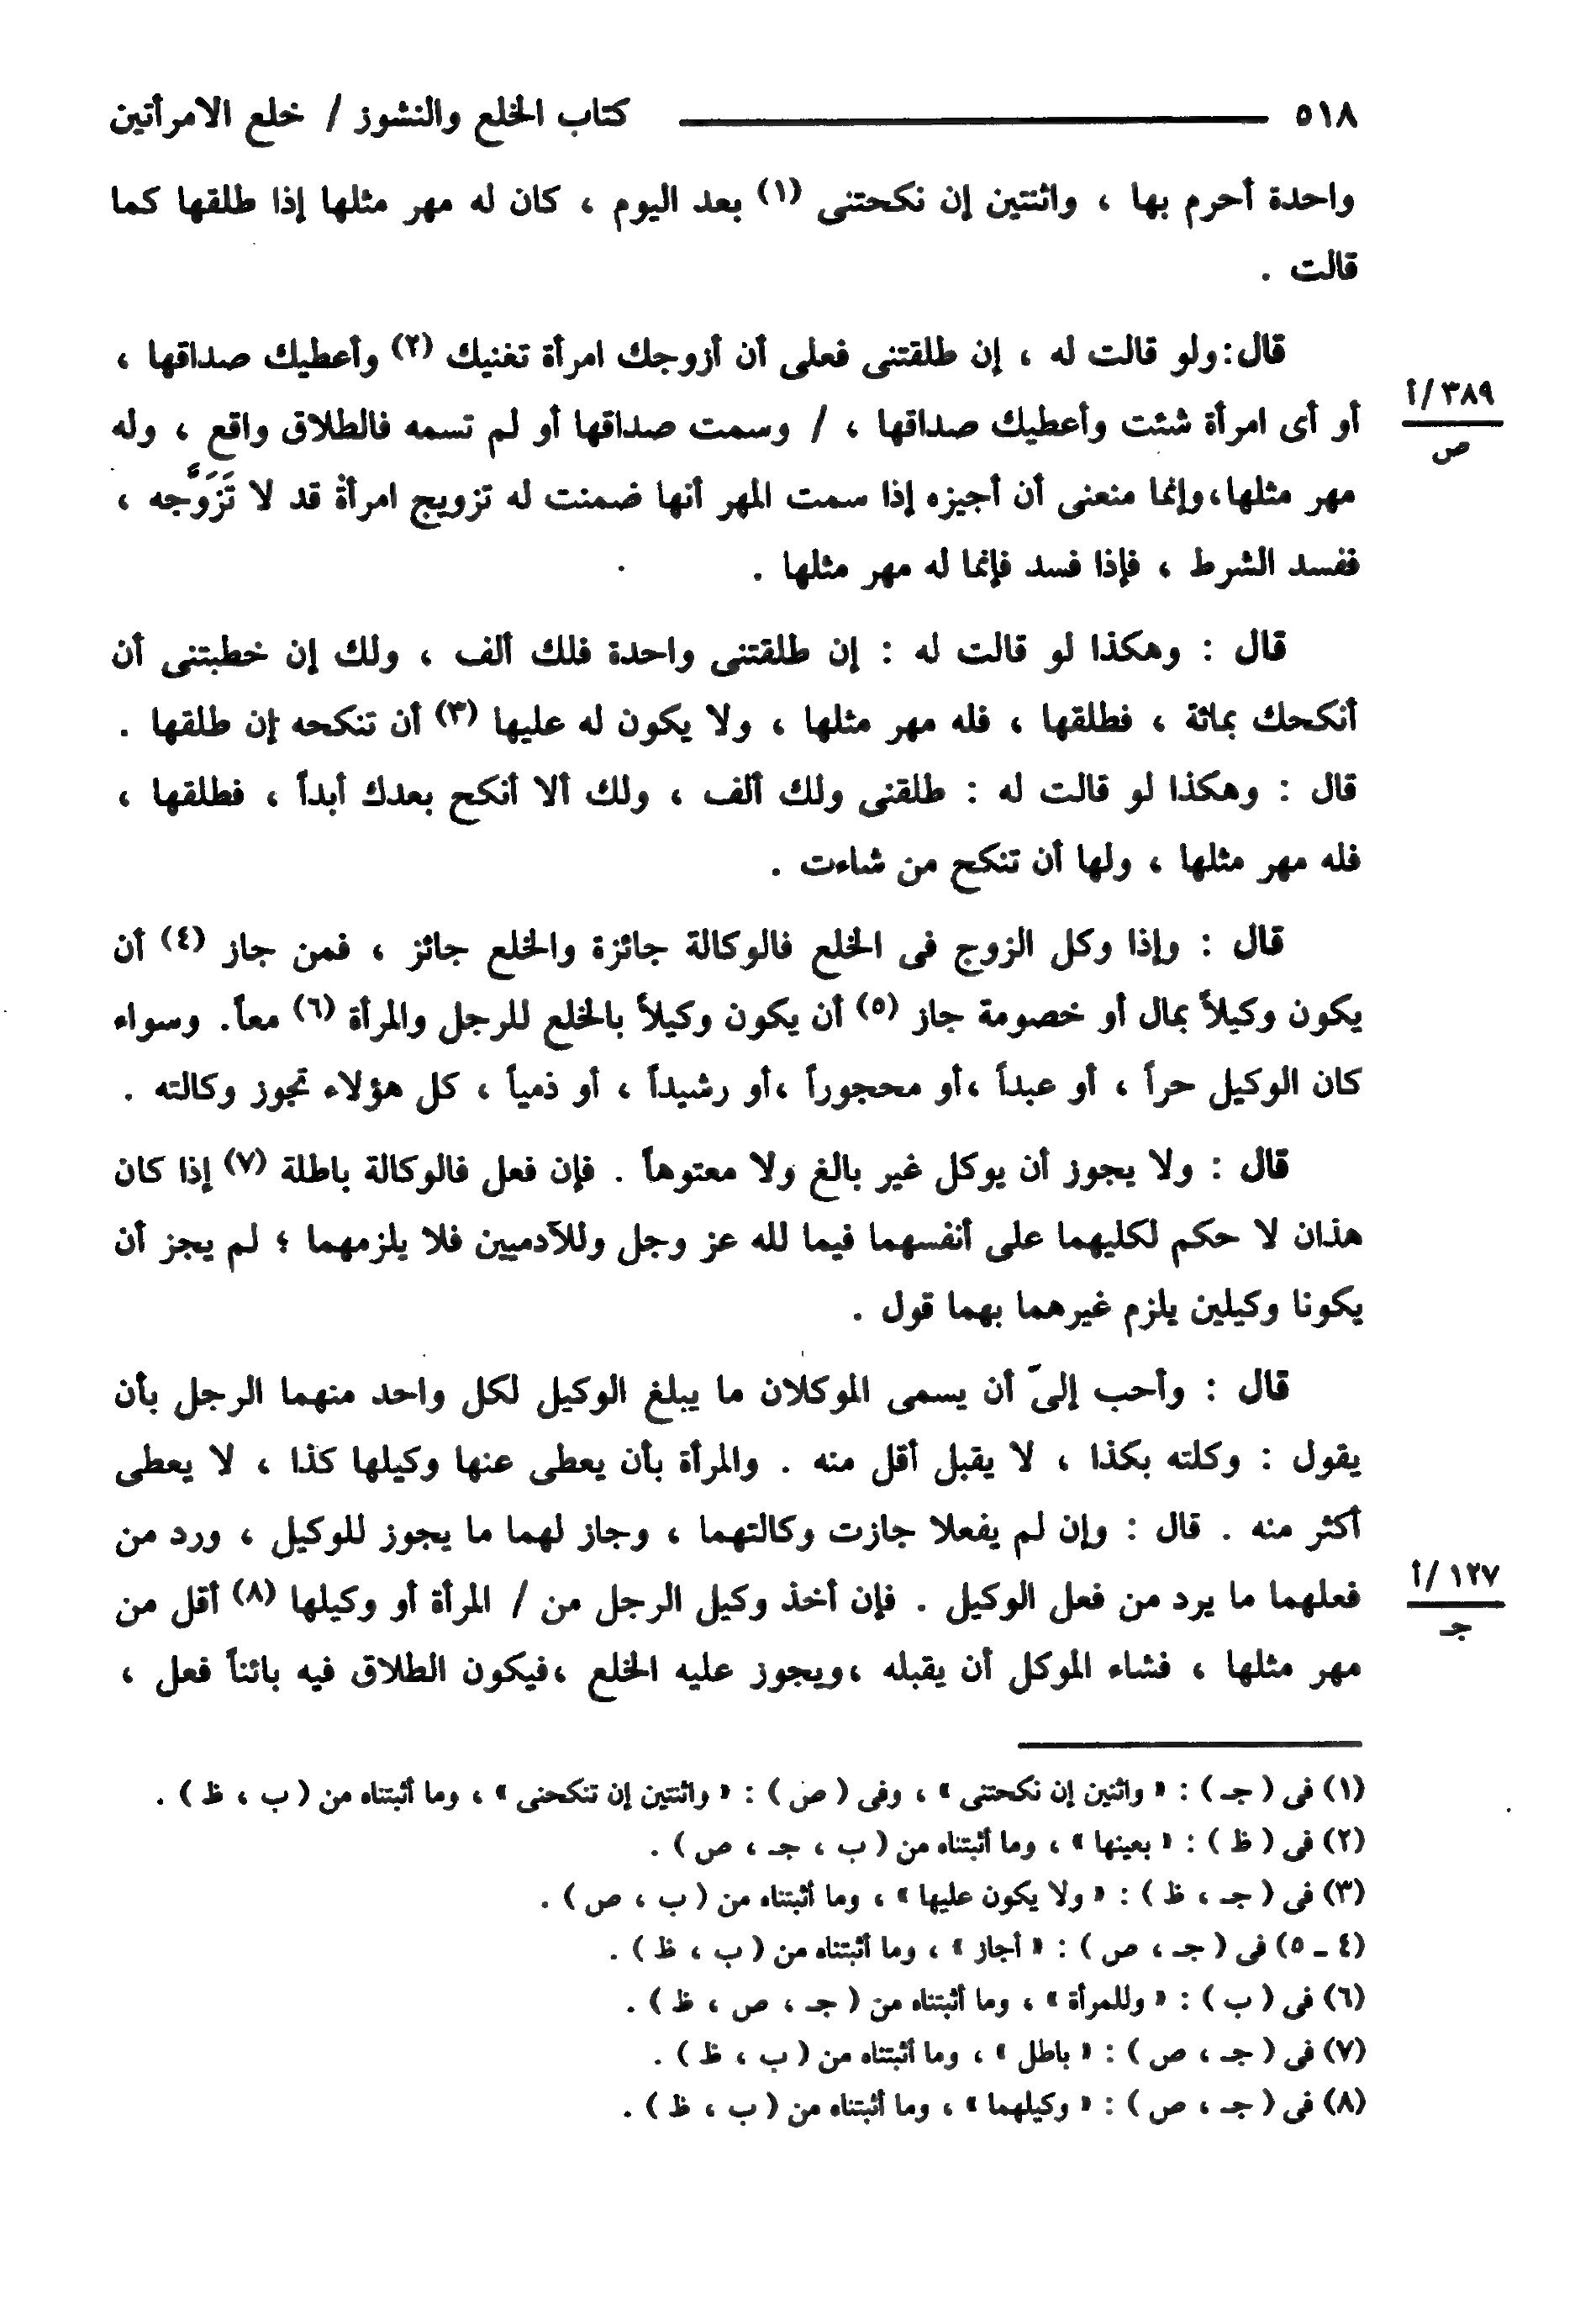 ٥١٨ كتاب الخلع والنشوز / خلع الامرأتين
واحدة أحرم بها ، واثنتين إن نكحتنى (١) بعد اليوم ، كان له مهر مثلها إذا طلقها كما
قالت .
قال:ولو قالت له ، إن طلقتنى فعلى أن أزوجك امرأة تغنيك (٢) وأعطيك صداقها ،
أو أى امرأة شئت وأعطيك صداقها ، / وسمت صداقها أو لم تسمه فالطلاق واقع ، وله
٣٨٩/أ
ص
مهر مثلها،وإنما منعنى أن أجيزه إذا سمت المهر أنها ضمنت له تزويج امرأة قد لا تَزَوَّجه ،
ففسد الشرط ، فإذا فسد فإنما له مهر مثلها .
قال : وهكذا لو قالت له : إن طلقتنى واحدة فلك ألف ، ولك إن خطبتنى أن
أنكحك بمائة ، فطلقها ، فله مهر مثلها ، ولا يكون له عليها (٣) أن تنكحه إن طلقها .
قال : وهكذا لو قالت له : طلقنى ولك ألف ، ولك ألا أنكح بعدك أبداً ، فطلقها ،
فله مهر مثلها ، ولها أن تنكح من شاءت .
قال : وإذا وكل الزوج فى الخلع فالوكالة جائزة والخلع جائز ، فمن جاز (٤) أن
يكون وكيلاً بمال أو خصومة جاز (٥) أن يكون وكيلاً بالخلع للرجل والمرأة (٦) معاً. وسواء
كان الوكيل حراً ، أو عبداً ،أو محجوراً ،أو رشيداً ، أو ذمياً ، كل هؤلاء تجوز وكالته .
قال : ولا يجوز أن يوكل غير بالغ ولا معتوهاً . فإن فعل فالوكالة باطلة (٧) إذا كان
هذان لا حكم لكليهما على أنفسهما فيما لله عز وجل وللآدميين فلا يلزمهما ؛ لم يجز أن
يكونا وكيلين يلزم غيرهما بهما قول .
قال : وأحب إلىّ أن يسمى الموكلان ما يبلغ الوكيل لكل واحد منهما الرجل بأن
يقول : وكلته بكذا ، لا يقبل أقل منه . والمرأة بأن يعطى عنها وكيلها كذا ، لا يعطى
أكثر منه . قال : وإن لم يفعلا جازت وكالتهما ، وجاز لهما ما يجوز للوكيل ، ورد من
فعلهما ما يرد من فعل الوكيل . فإن أخذ وكيل الرجل من / المرأة أو وكيلها (٨) أقل من
١٢٧/أ
جـ
مهر مثلها ، فشاء الموكل أن يقبله ،ويجوز عليه الخلع ،فيكون الطلاق فيه بائناً فعل ،
(١) فى ( جـ ) : « واثنين إن نكحتنى » ، وفى ( ص ) : « واثنتين إن تنكحنى » ، وما أثبتناه من ( ب ، ظ ) .
(٢) فى ( ظ ) : « بعينها » ، وما أثبتناه من ( ب ، جـ ، ص ) .
(٣) فى ( جـ ، ظ ) : « ولا يكون عليها » ، وما أثبتناه من ( ب ، ص ) .
(٤ ـ ٥) فى ( جـ ، ص ) : « أجاز » ، وما أثبتناه من ( ب ، ظ ) .
(٦) فى ( ب ) : « وللمرأة » ، وما أثبتناه من ( جـ ، ص ، ظ ) .
(٧) فى ( جـ ، ص ) : « باطل » ، وما أثبتناه من ( ب ، ظ ) .
(٨) فى ( جـ ، ص ) : « وكيلهما » ، وما أثبتناه من ( ب ، ظ ) .